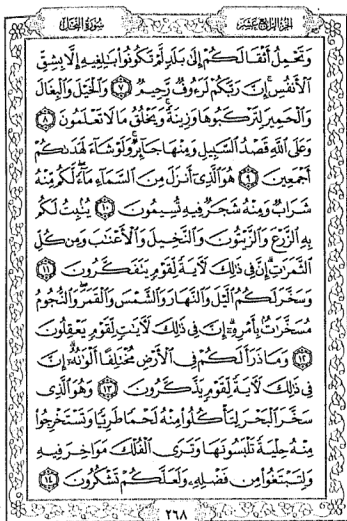 سُورَةُ النَّحْلِ
الجُزْءُ الرَّابِعَ عَشَرَ
وَتَحْمِلُ أَثْقَالَكُمْ إِلَىٰ بَلَدٍ لَّمْ تَكُونُوا۟ بَٰلِغِيهِ إِلَّا بِشِقِّ
ٱلْأَنفُسِ ۚ إِنَّ رَبَّكُمْ لَرَءُوفٌ رَّحِيمٌ ٧ وَٱلْخَيْلَ وَٱلْبِغَالَ
وَٱلْحَمِيرَ لِتَرْكَبُوهَا وَزِينَةً ۚ وَيَخْلُقُ مَا لَا تَعْلَمُونَ ٨
وَعَلَى ٱللَّهِ قَصْدُ ٱلسَّبِيلِ وَمِنْهَا جَآئِرٌ ۚ وَلَوْ شَآءَ لَهَدَىٰكُمْ
أَجْمَعِينَ ٩ هُوَ ٱلَّذِىٓ أَنزَلَ مِنَ ٱلسَّمَآءِ مَآءً ۖ لَّكُم مِّنْهُ
شَرَابٌ وَمِنْهُ شَجَرٌ فِيهِ تُسِيمُونَ ١٠ يُنۢبِتُ لَكُم
بِهِ ٱلزَّرْعَ وَٱلزَّيْتُونَ وَٱلنَّخِيلَ وَٱلْأَعْنَٰبَ وَمِن كُلِّ
ٱلثَّمَرَٰتِ ۗ إِنَّ فِى ذَٰلِكَ لَءَايَةً لِّقَوْمٍ يَتَفَكَّرُونَ ١١
وَسَخَّرَ لَكُمُ ٱلَّيْلَ وَٱلنَّهَارَ وَٱلشَّمْسَ وَٱلْقَمَرَ ۖ وَٱلنُّجُومُ
مُسَخَّرَٰتٌۢ بِأَمْرِهِۦٓ ۗ إِنَّ فِى ذَٰلِكَ لَءَايَٰتٍ لِّقَوْمٍ يَعْقِلُونَ
١٢ وَمَا ذَرَأَ لَكُمْ فِى ٱلْأَرْضِ مُخْتَلِفًا أَلْوَٰنُهُۥٓ ۗ إِنَّ
فِى ذَٰلِكَ لَءَايَةً لِّقَوْمٍ يَذَّكَّرُونَ ١٣ وَهُوَ ٱلَّذِى
سَخَّرَ ٱلْبَحْرَ لِتَأْكُلُوا۟ مِنْهُ لَحْمًا طَرِيًّا وَتَسْتَخْرِجُوا۟
مِنْهُ حِلْيَةً تَلْبَسُونَهَا وَتَرَى ٱلْفُلْكَ مَوَاخِرَ فِيهِ
وَلِتَبْتَغُوا۟ مِن فَضْلِهِۦ وَلَعَلَّكُمْ تَشْكُرُونَ ١٤
٢٦٨